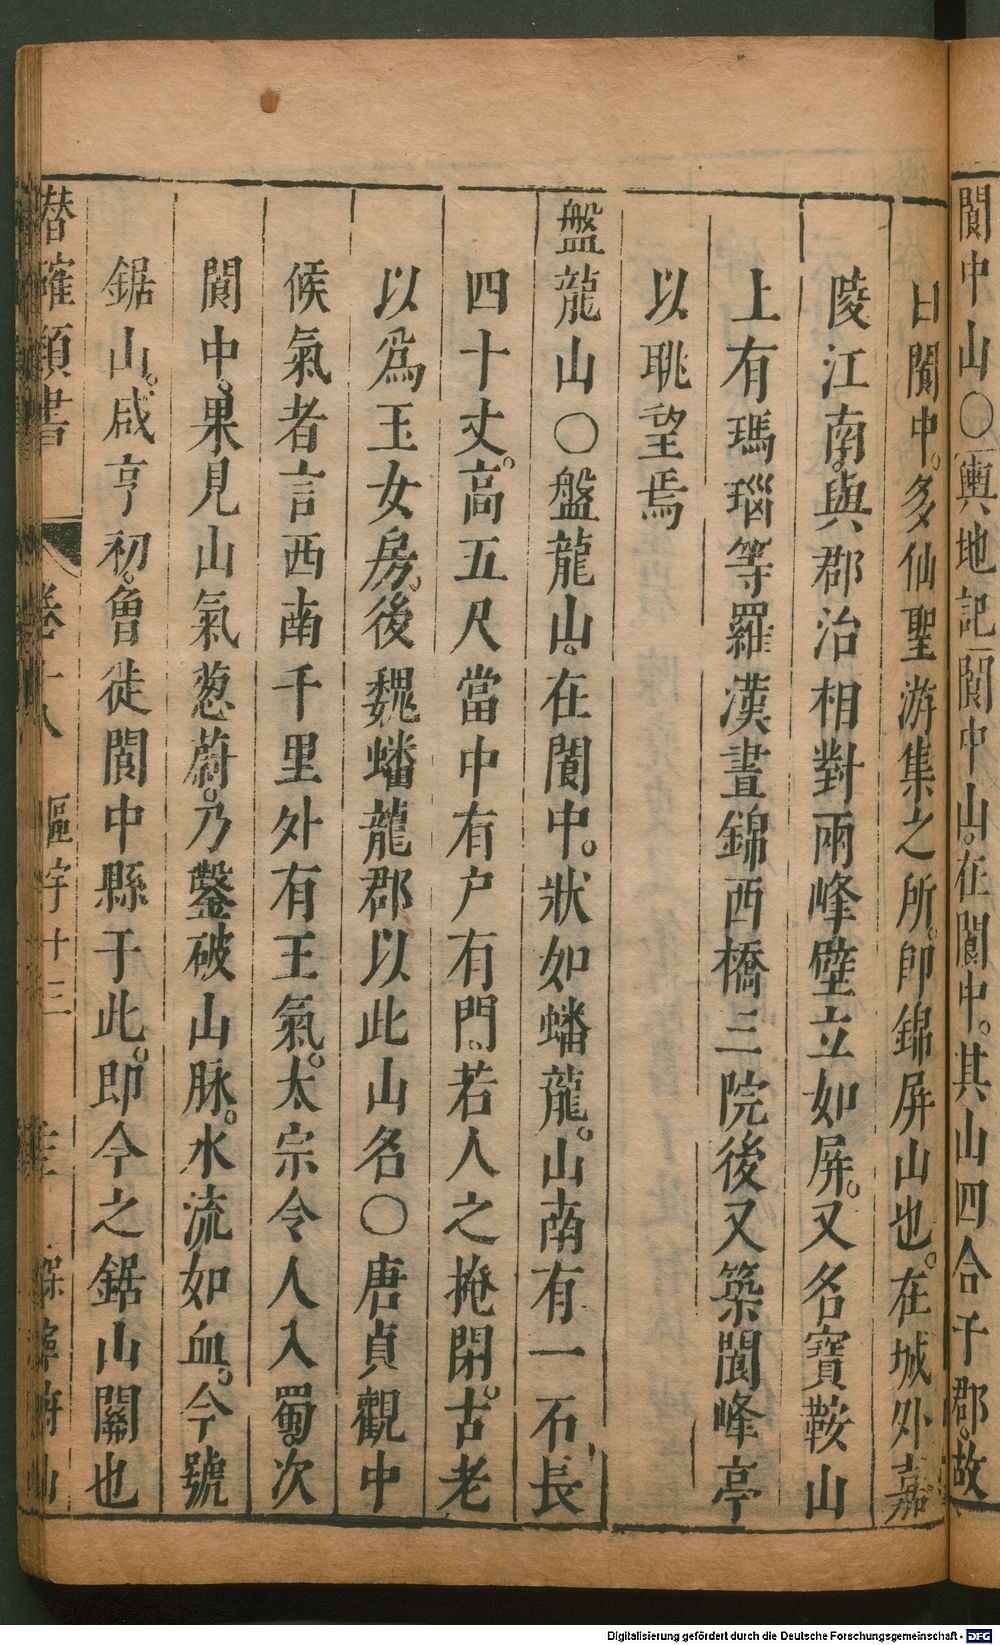 閬中山〇輿地記閬中山在閬中其山四合于郡故
曰閬中多仙聖游集之所即錦屏山也在城外嘉
陵江南與郡治相對兩峰壁立如屏又名寶鞍山
上有瑪瑙等羅漢晝錦西橋三院後又築閬峰亭
以眺望焉
盤龍山〇盤龍山在閬中狀如蟠龍山南有一石長
四十丈高五尺當中有户有門若人之掩閉古老
以爲玉女房後魏蟠龍郡以此山名〇唐貞觀中
候氣者言西南千里外有王氣太宗令人入蜀次
閬中果見山氣葱蔚乃鑿破山脉水流如血今號
鋸山咸亨初魯徙閬中縣于此即今之鋸山關也
潛確類書 卷十八 區宇十三 三 保寧府山
Digitalisierung gefördert durch die Deutsche Forschungsgemeinschaft - DFG